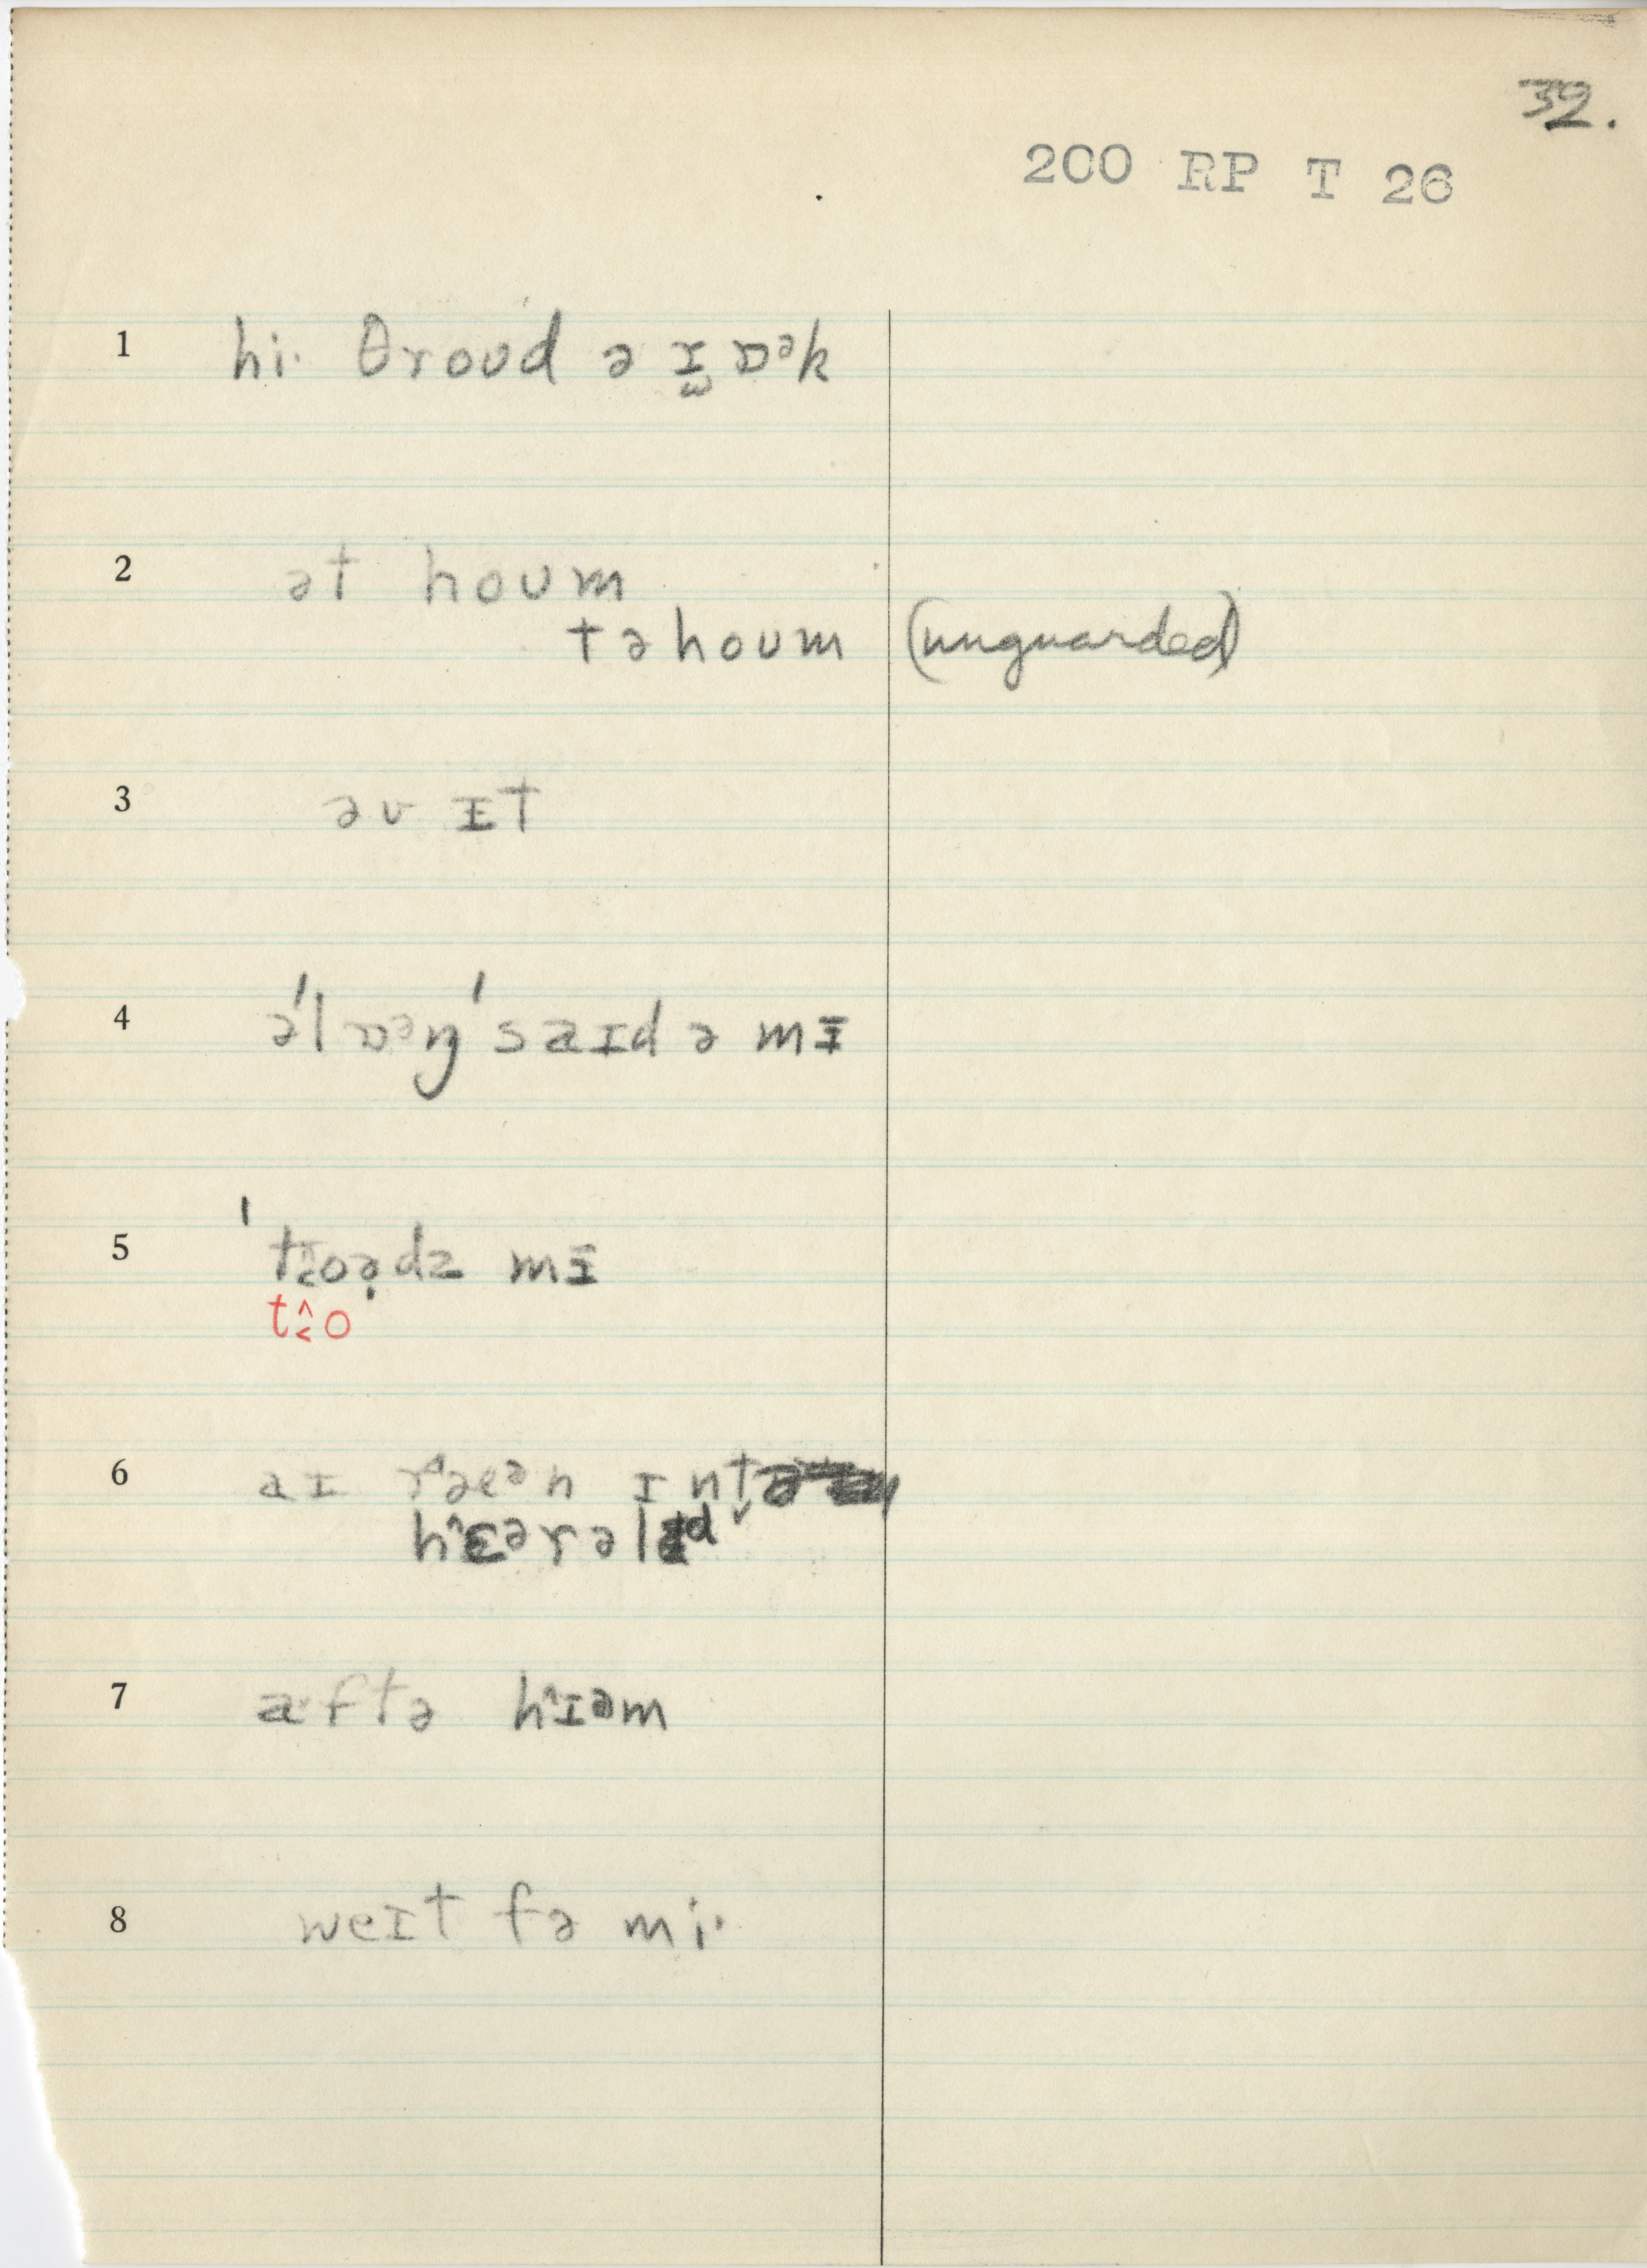 32.
200 RP T 26
1 hi· θroʊd ə ɪ̯ ɒᵊk
2 ət hoʊm
təhoʊm (unguarded)
3 əv ɪt
4 ə'lɒᵊŋ'saɪd ə mɪ̵
5 't˰oə̣dz mɪ̵
t˰o
6 aɪ ræᵊn ɪnt
hɛərəld
7 a·ftə hɪəm
8 weɪt fə mi·